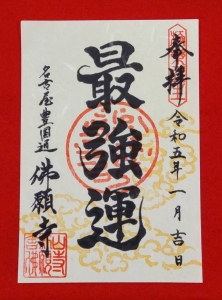 奉拝
令和五年一月吉日
最強運
名古屋豊国通
佛願寺